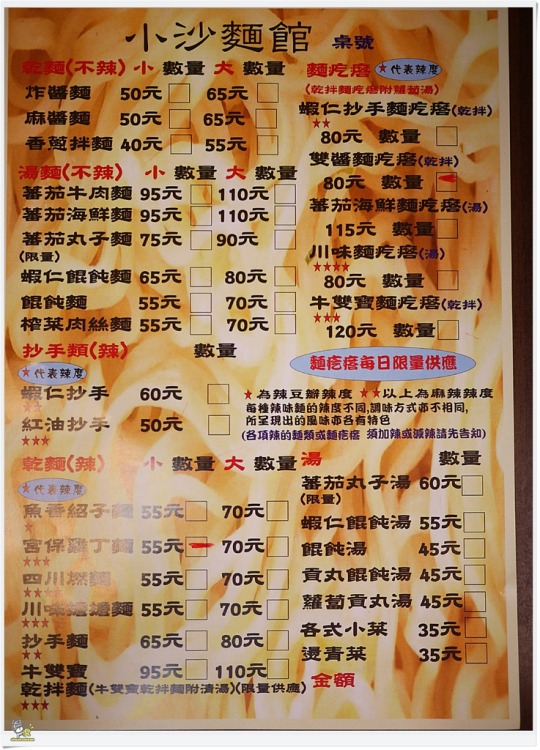 小沙麵館 桌號
乾麵(不辣) 小 數量 大 數量
炸醬麵 50元 65元
麻醬麵 50元 65元
香蔥拌麵 40元 55元
湯麵(不辣) 小 數量 大 數量
蕃茄牛肉麵 95元 110元
蕃茄海鮮麵 95元 110元
蕃茄丸子麵 75元 90元
(限量)
蝦仁餛飩麵 65元 80元
餛飩麵 55元 70元
榨菜肉絲麵 55元 70元
抄手類(辣) 數量
★代表辣度
蝦仁抄手 60元
★★
紅油抄手 50元
★★★
乾麵(辣) 小 數量 大 數量
★代表辣度
魚香紹子麵 55元 70元
★
宮保雞丁麵 55元 70元
★★★
四川燃麵 55元 70元
★★★★
川味燒燒麵 55元 70元
★★★
抄手麵 65元 80元
★★
牛雙寶 95元 110元
乾拌麵(牛雙寶乾拌麵附清湯)(限量供應)
★★★
麵疙瘩 ★代表辣度
(乾拌麵疙瘩附蘿蔔湯)
蝦仁抄手麵疙瘩(乾拌)
★★
80元 數量
雙醬麵疙瘩(乾拌)
80元 數量
蕃茄海鮮麵疙瘩(湯)
115元 數量
川味麵疙瘩(湯)
★★★★
80元 數量
牛雙寶麵疙瘩(乾拌)
★★★
120元 數量
麵疙瘩每日限量供應
★為辣豆瓣辣度 ★★以上為麻辣辣度
每種辣味麵的辣度不同,調味方式亦不相同,
所呈現出的風味亦各有特色
(各項辣的麵類或麵疙瘩 須加辣或減辣請先告知)
湯 數量
蕃茄丸子湯 60元
(限量)
蝦仁餛飩湯 55元
餛飩湯 45元
貢丸餛飩湯 45元
蘿蔔貢丸湯 45元
各式小菜 35元
燙青菜 35元
金額